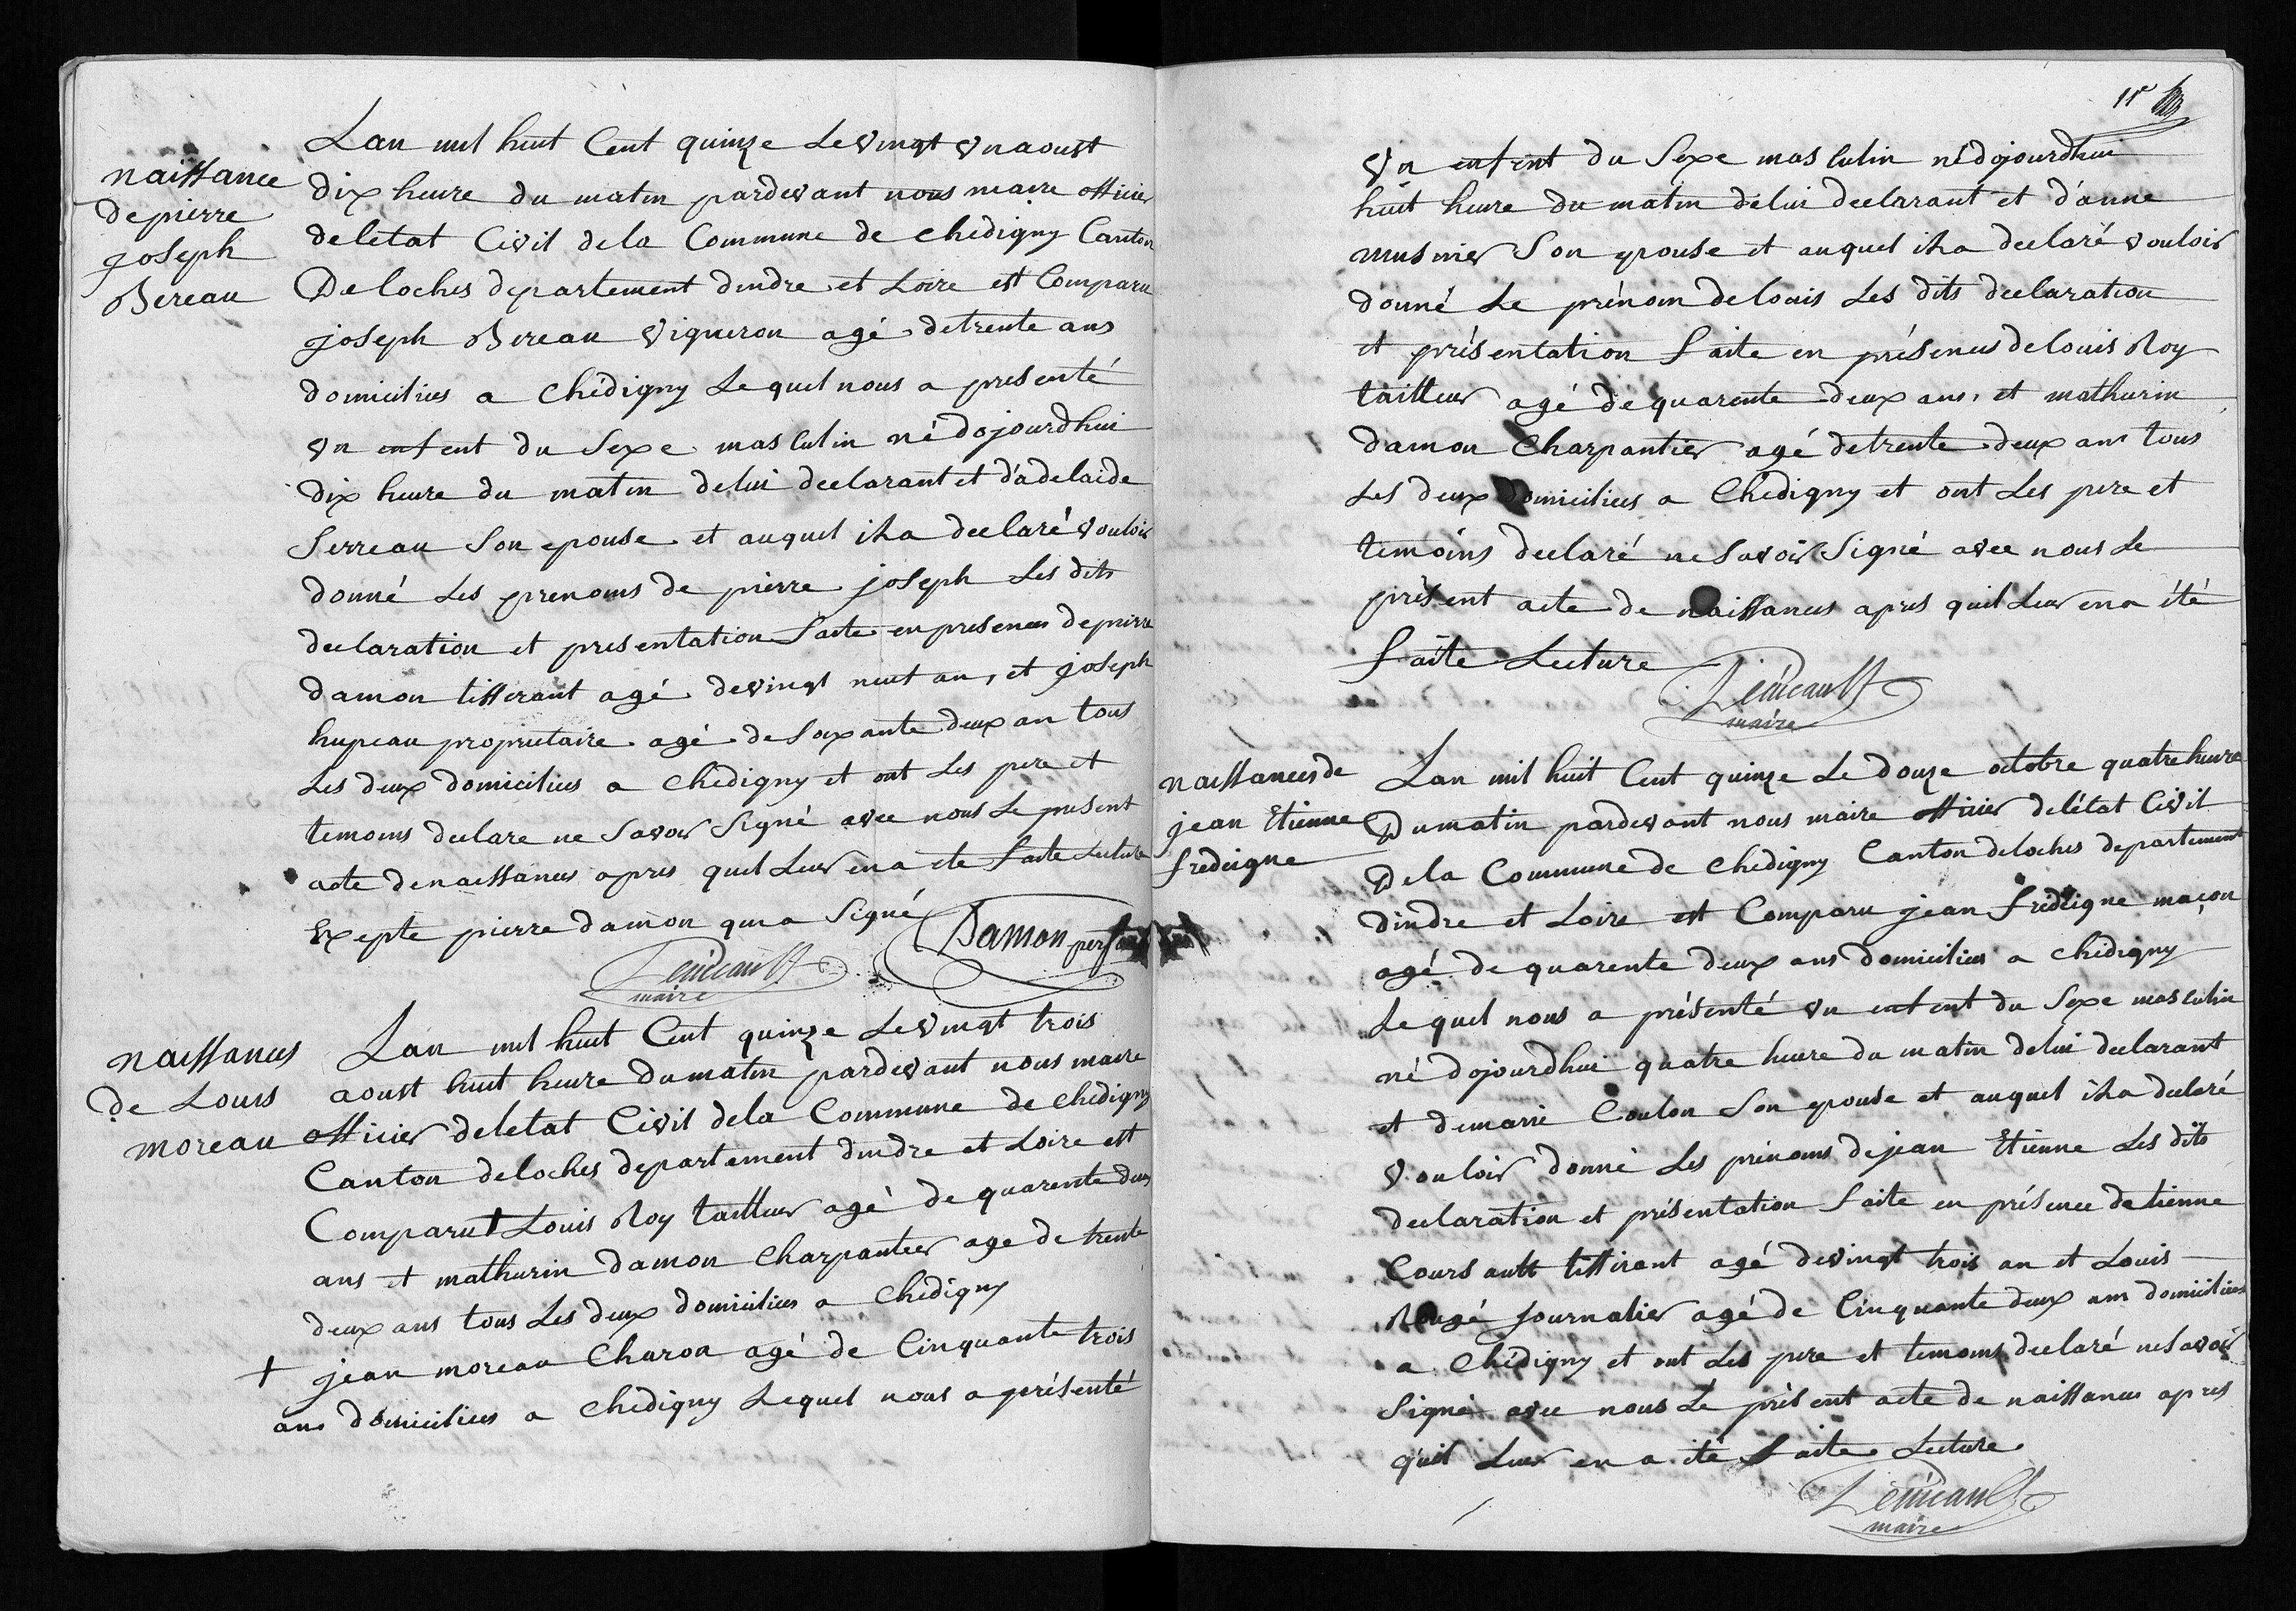 naissance
de pierre
joseph
Bereau
Lan mil huit Cent quinze Le vingt un aoust
dix heure du matin pardevant nous maire officier
deletat Civil dela Commune de chedigny Canton
De loches departement dindre et Loire est Comparu
joseph Bereau vigneron agé detrente ans
domicilies a chédigny Le quel nous a presenté
un enfent du Sexe masculin né dojourdhui
dix heure du matin delui declarant et d'adelaide
Serreau Son epouse et auquel il a declaré vouloir
donné Les prenoms de pierre joseph Les dits
declaration et presentation faite en presences de pierre
damon tisserant agé devingt neuf an, et joseph
hupeau proprietaire agé de Soixante deux an tous
Les deux domicilies a chédigny et ont Les pere et
temoins declare ne Savoir Signé avec nous Le present
acte denaissances apres quil Leur ena ete faite Lecture
Exepte pierre damon qui a Signé
Damon
maire
naissances
de Louis
moreau
Lan mil huit Cent quinze Le vingt trois
aoust huit heure dumatin pardevant nous maire
officier deletat Civil dela Commune de chedigny
Canton deloches departement dindre et Loire est
Comparu † Louis Roy tailleur agé de quarente deux
ans et mathurin damon Charpantier age de trente
deux ans tous Les deux domicilies a chédigny
† jean moreau Charon agé de Cinquante trois
ans domicilies a chedigny Lequel nous a présenté
11e
un enfent du Sexe masculin né dojourdhui
huit heure du matin delui declarant et d'anne
musnier Son epouse et auquel il a declaré vouloir
donné Le prénom de louis Les dits declaration
et présentation faite en présences de louis Roy
tailleur agé de quarente deux ans, et mathurin
damon Charpantier agé detrente deux ans tous
Les deux domicilies a Chédigny et ont Les pere et
temoins declaré ne Savoir Signé avec nous Le
présent acte de naissances apres quil Leur ena été
faite Lecture
maire
naissances de
jean Etienne
fredeigne
Lan mil huit Cent quinze Le douze octobre quatre heure
Du matin pardevant nous maire officier delétat Civil
De la Commune de chedigny Canton deloches departement
dindre et Loire est Comparu jean fredeigne maçon
agé de quarente deux ans domicilies a chédigny
Le quel nous a présenté un enfent du Sexe masculin
né dojourdhui quatre heure du matin delui declarant
et demarie Coulon Son epouse et auquel il a declaré
vouloir donné Les prénoms dejean Etienne Les dits
declaration et présentation faite en présence detienne
Coursault tisserant agé devingt trois an et Louis
Rougé journalier agé de Cinquante deux ans domicilies
a Chédigny et ont Les pere et temoins declaré ne Savoir
Signé avec nous Le présent acte de naissances apres
quil Leur en a été faite Lecture
maire